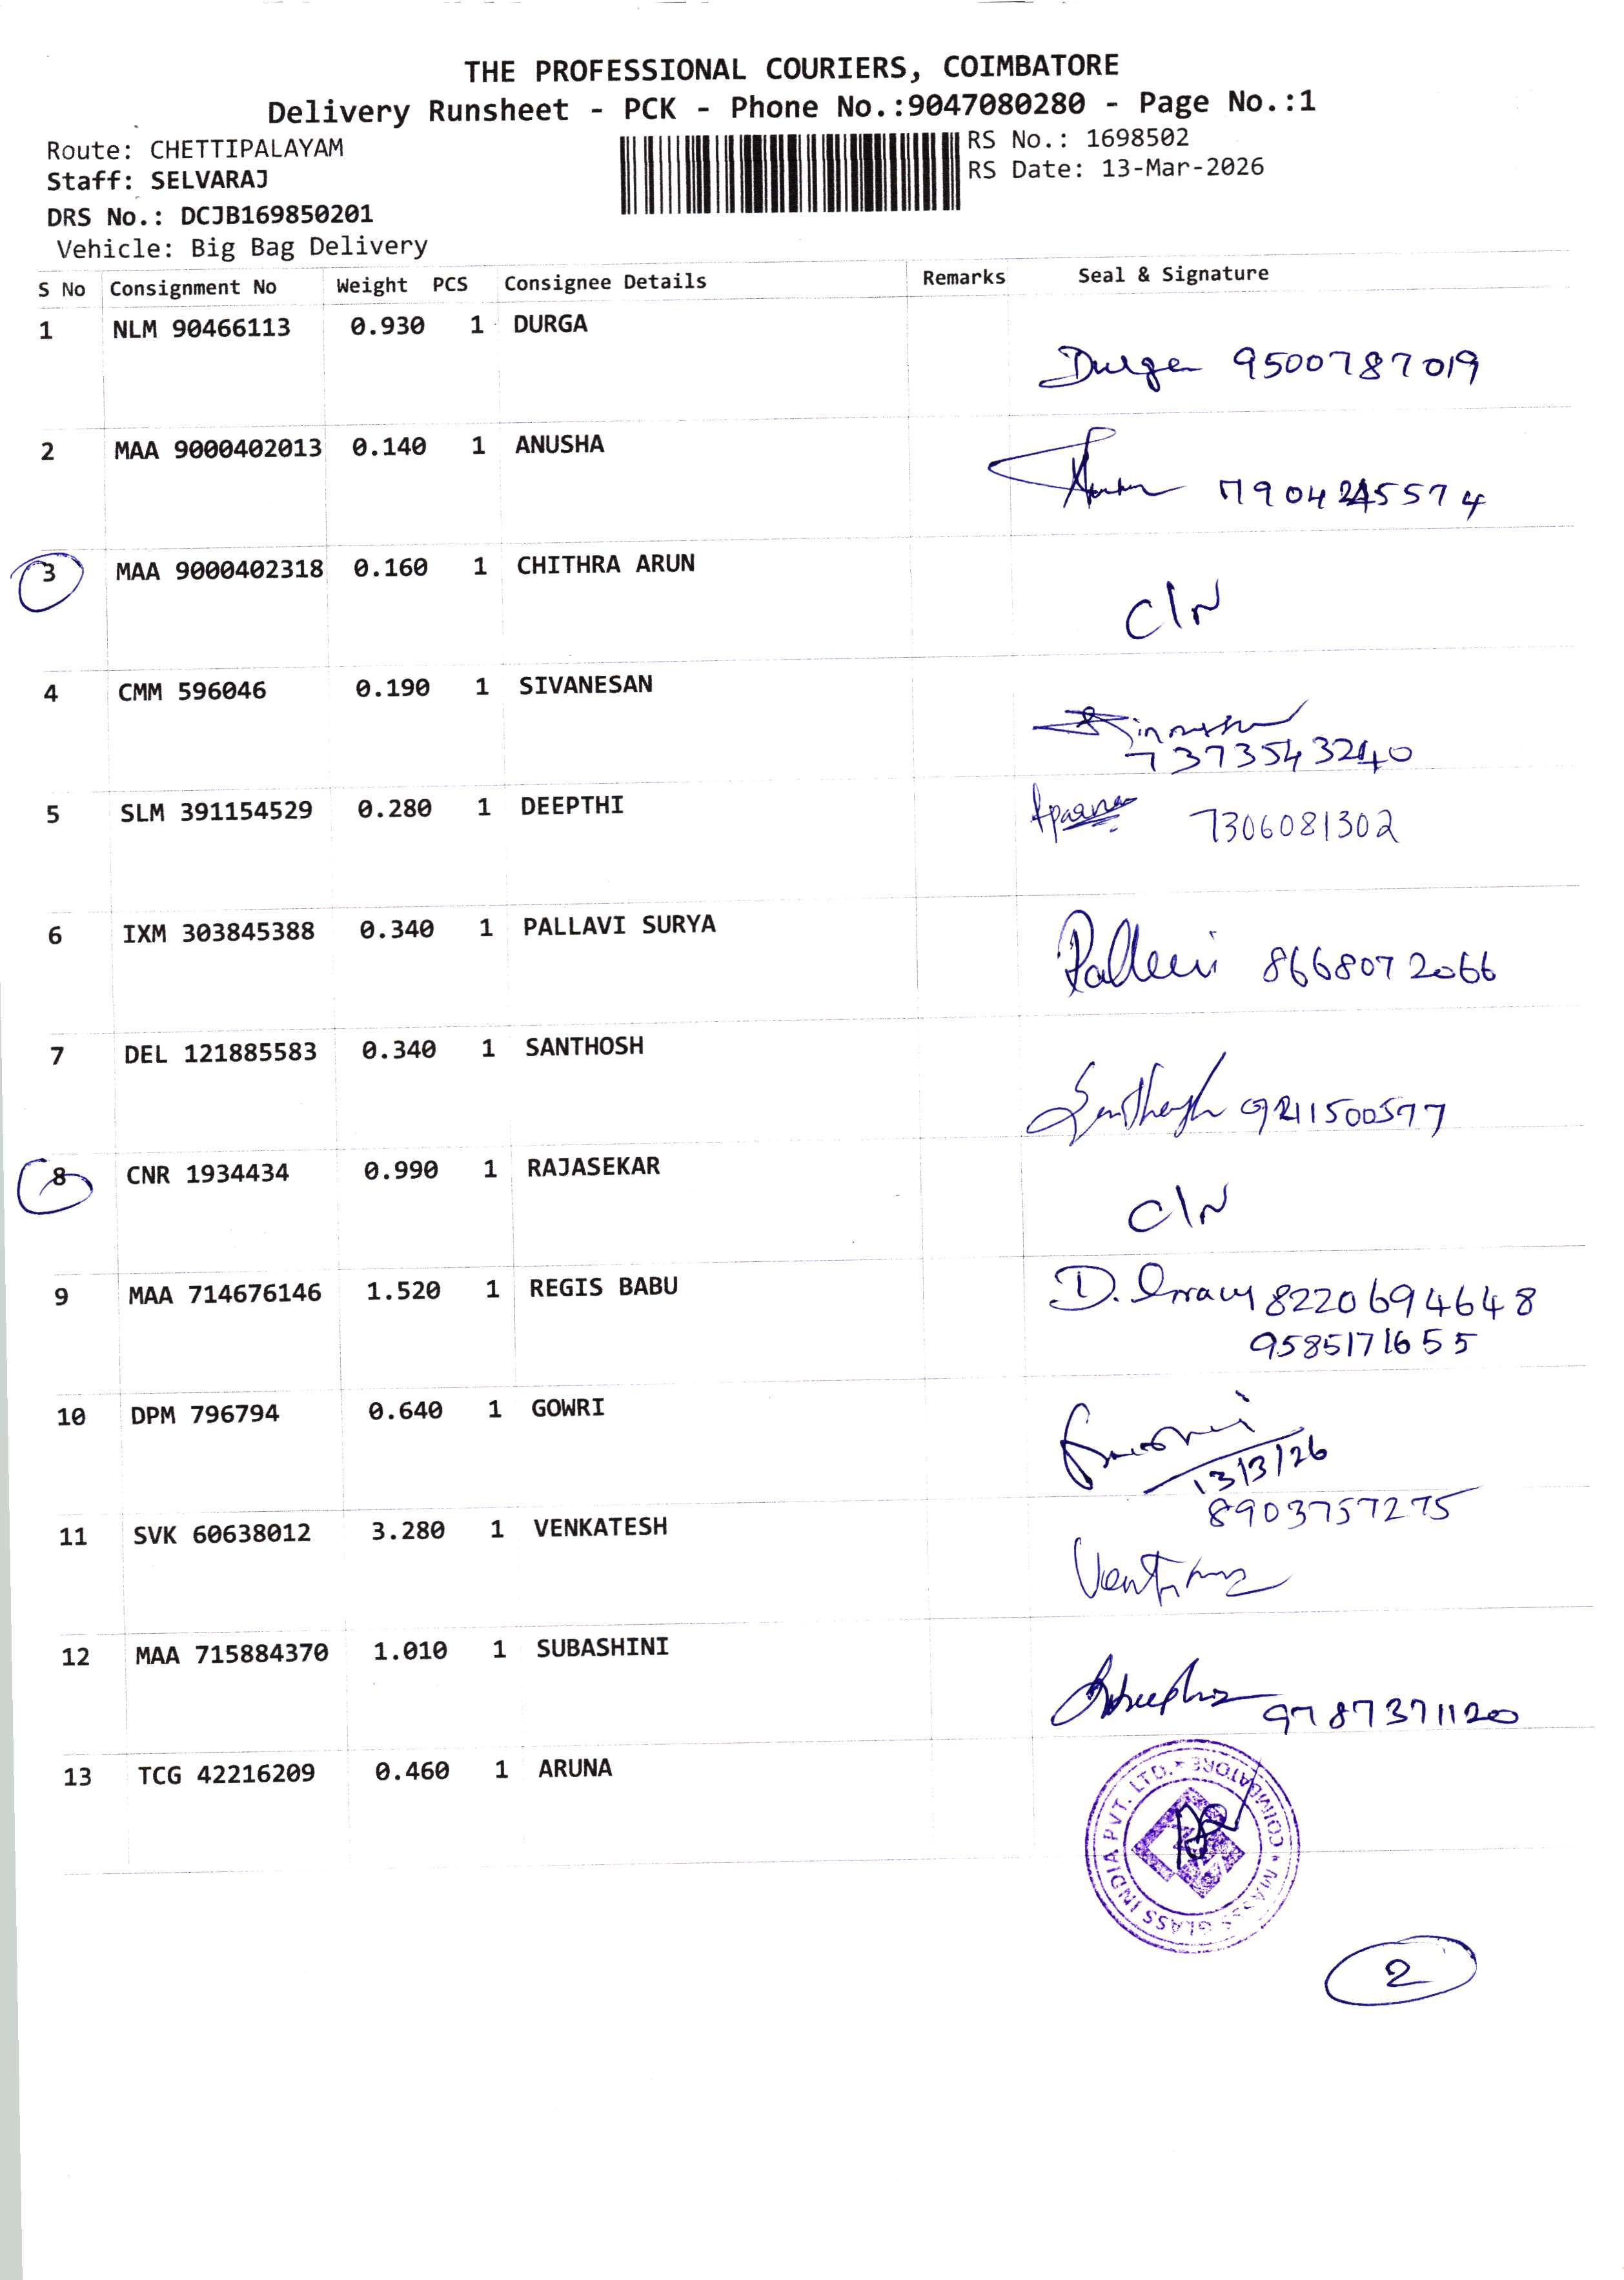 THE PROFESSIONAL COURIERS, COIMBATORE
Delivery Runsheet - PCK - Phone No.:9047080280 - Page No.:1
Route: CHETTIPALAYAM
RS No.: 1698502
Staff: SELVARAJ
RS Date: 13-Mar-2026
DRS No.: DCJB169850201
Vehicle: Big Bag Delivery
S No Consignment No Weight PCS Consignee Details Remarks Seal & Signature
1 NLM 90466113 0.930 1 DURGA
Durga 9500787019
2 MAA 9000402013 0.140 1 ANUSHA
3 MAA 9000402318 0.160 1 CHITHRA ARUN
C/N
4 CMM 596046 0.190 1 SIVANESAN
7373543240
5 SLM 391154529 0.280 1 DEEPTHI
7306081302
6 IXM 303845388 0.340 1 PALLAVI SURYA
Pallavi 8668072066
7 DEL 121885583 0.340 1 SANTHOSH
Santhosh
8 CNR 1934434 0.990 1 RAJASEKAR
C\N
9 MAA 714676146 1.520 1 REGIS BABU
D. 8220694648
9585171655
10 DPM 796794 0.640 1 GOWRI
13/3/26
8903757275
11 SVK 60638012 3.280 1 VENKATESH
12 MAA 715884370 1.010 1 SUBASHINI
9787371120
13 TCG 42216209 0.460 1 ARUNA
GLASS INDIA PVT. LTD. * COIMBATORE *
2